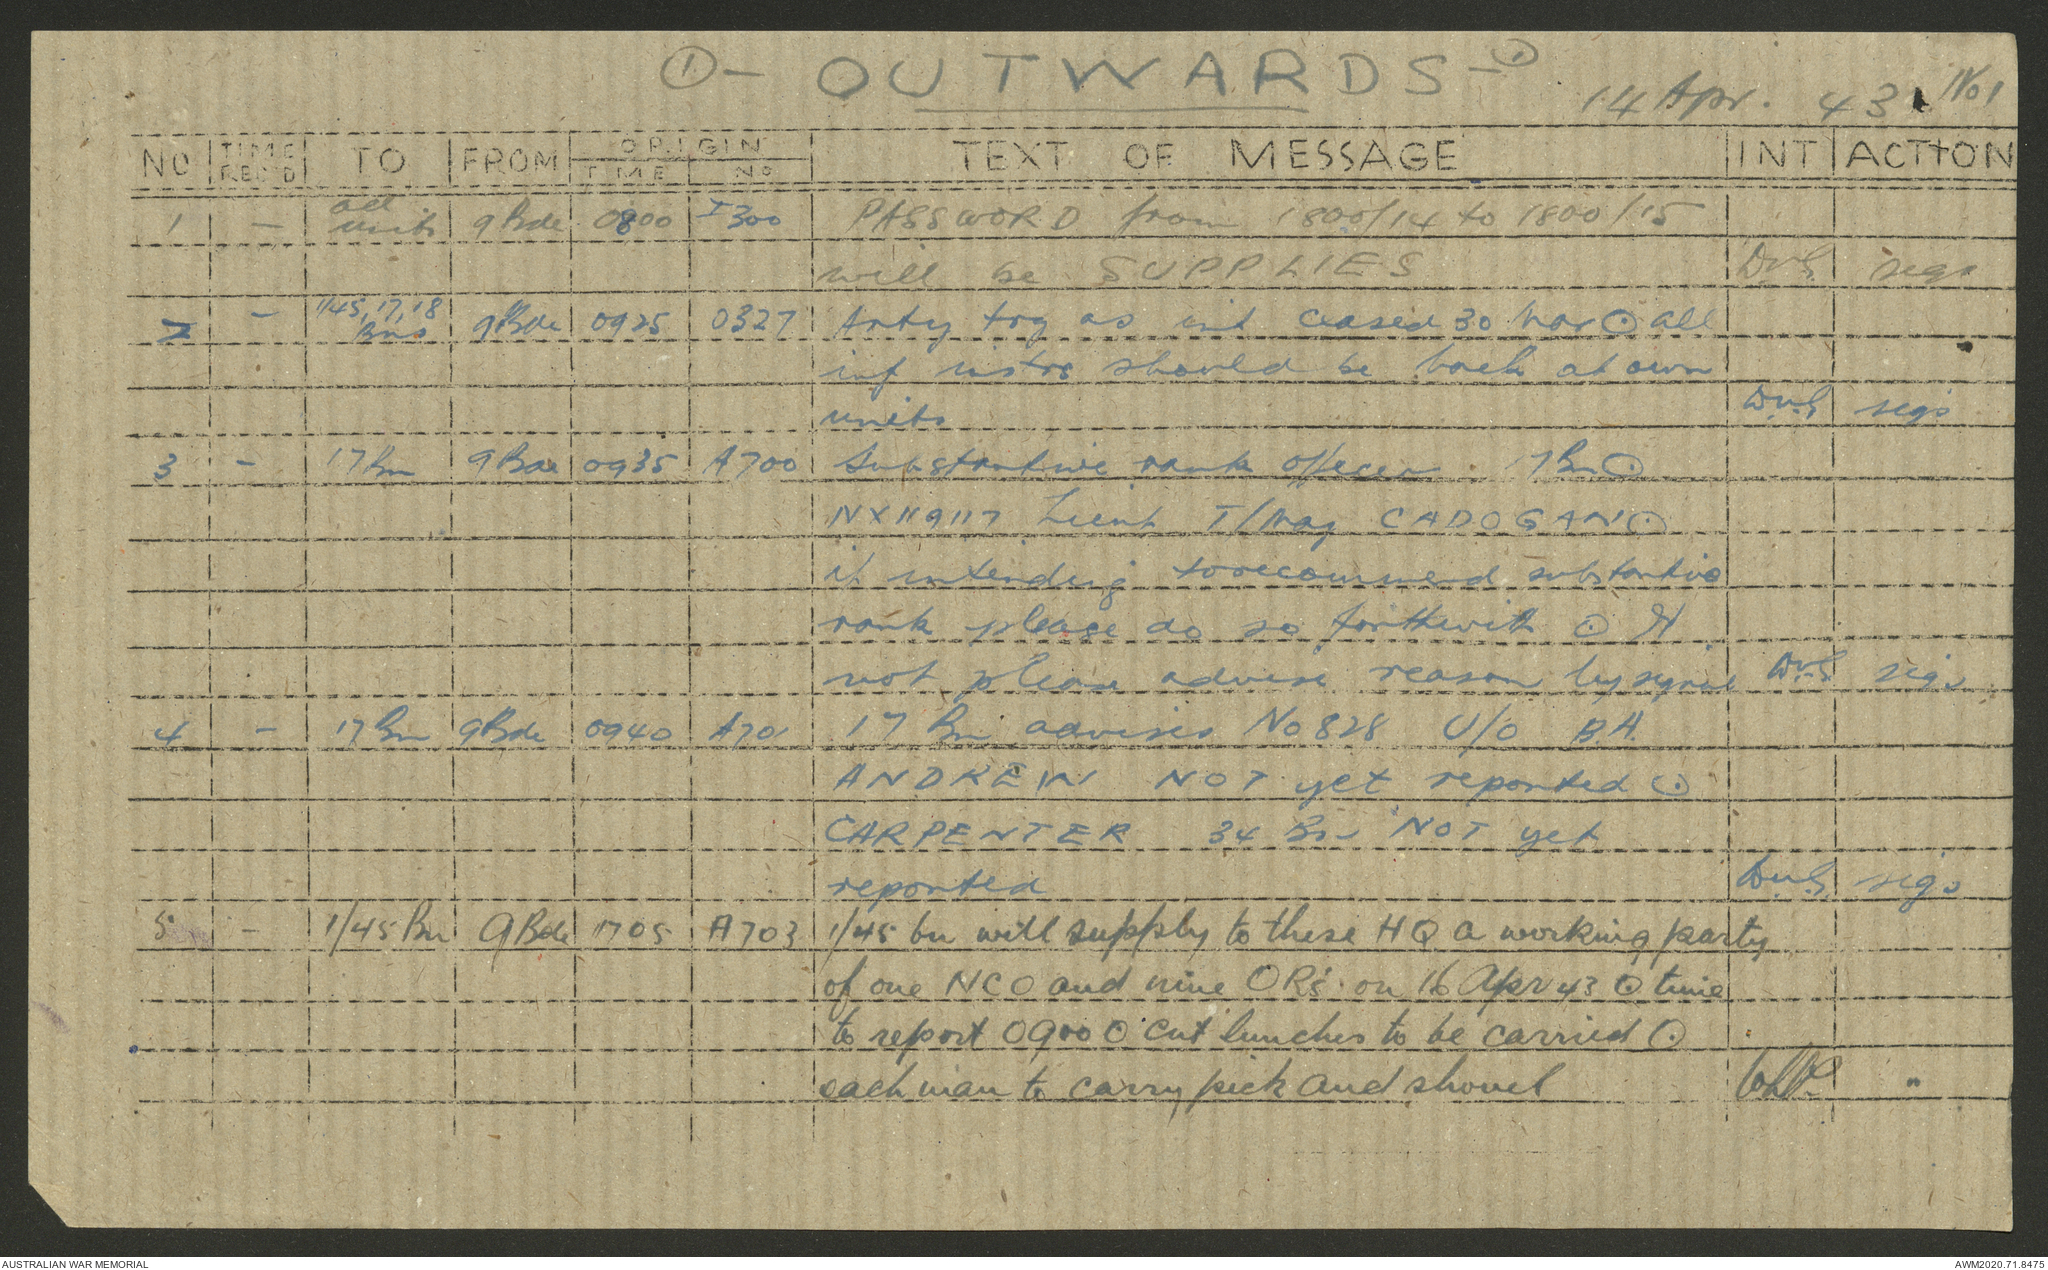 ① - OUTWARDS - ①
14 Apr. 43 No 1
NO TIME REC'D TO FROM ORIGIN TIME NO TEXT OF MESSAGE INT ACTION
1 - all units 9 Bde 0800 I300 PASSWORD from 1800/14 to 1800/15
will be SUPPLIES sigs
2 - 1/45, 17, 18 Bns 9 Bde 0925 0327 Arty trg as inf ceased 30 Mar ⊙ all
inf instrs should be back at own
units sigs
3 - 17 Bn 9 Bde 0935 A700 Substantive rank officer 17 Bn ⊙
NX119117 Lieut T/Maj CADOGAN ⊙
if intending to recommend substantive
rank please do so forthwith ⊙ If
not please advise reason by signal sigs
4 - 17 Bn 9 Bde 0940 A701 17 Bn advises No 828 U/O B.A.
ANDREW NOT yet reported ⊙
CARPENTER 34 Bn NOT yet
reported sigs
5 - 1/45 Bn 9 Bde 1705 A703 1/45 bn will supply to these HQ a working party
of one NCO and nine ORs. on 16 Apr 43 ⊙ time
to report 0900 ⊙ cut lunches to be carried ⊙
each man to carry pick and shovel "
AUSTRALIAN WAR MEMORIAL AWM2020.71.8475